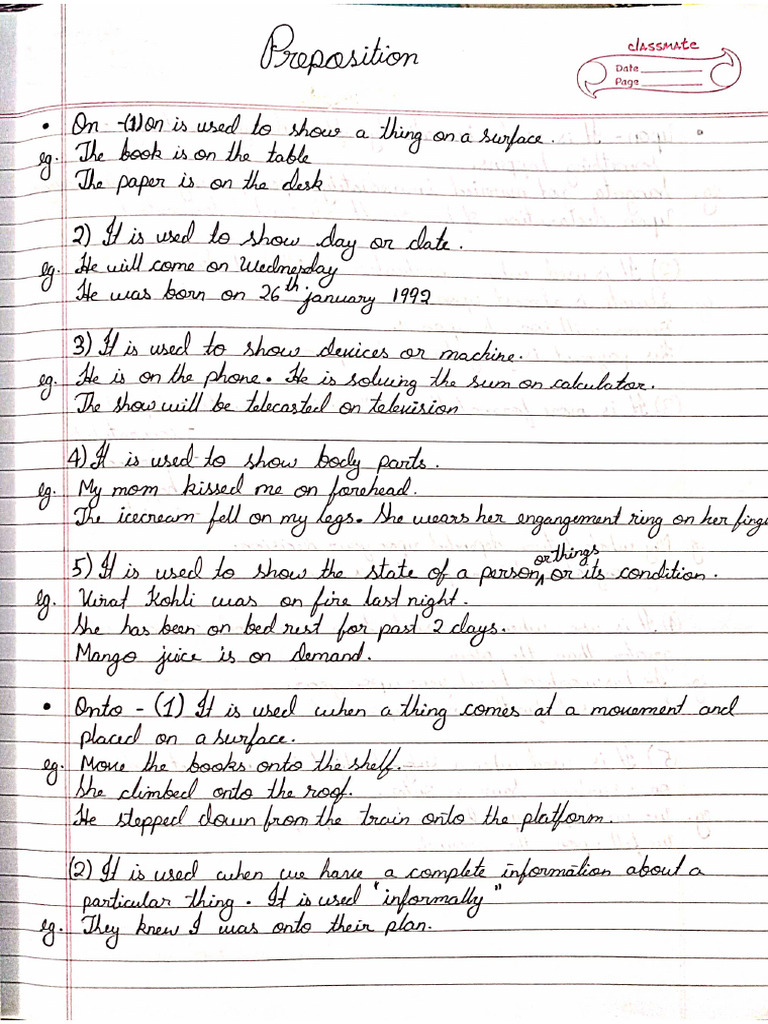 Preposition
classmate
Date
Page
• On -(1) on is used to show a thing on a surface.
eg. The book is on the table
The paper is on the desk
2) It is used to show day or date.
eg. He will come on Wednesday
He was born on 26th january 1992
3) It is used to show devices or machine.
eg. He is on the phone. He is solving the sum on calculator.
The show will be telecasted on television
4) It is used to show body parts.
eg. My mom kissed me on forehead.
The icecream fell on my legs. She wears her engangement ring on her finge
or things
5) It is used to show the state of a person, or its condition.
eg. Virat Kohli was on fire last night.
She has been on bed rest for past 2 days.
Mango juice is on demand.
• Onto - (1) It is used when a thing comes at a movement and
placed on a surface.
eg. Move the books onto the shelf.
She climbed onto the roof.
He stepped down from the train onto the platform.
(2) It is used when we have a complete information about a
particular thing. It is used "informally"
eg. They knew I was onto their plan.